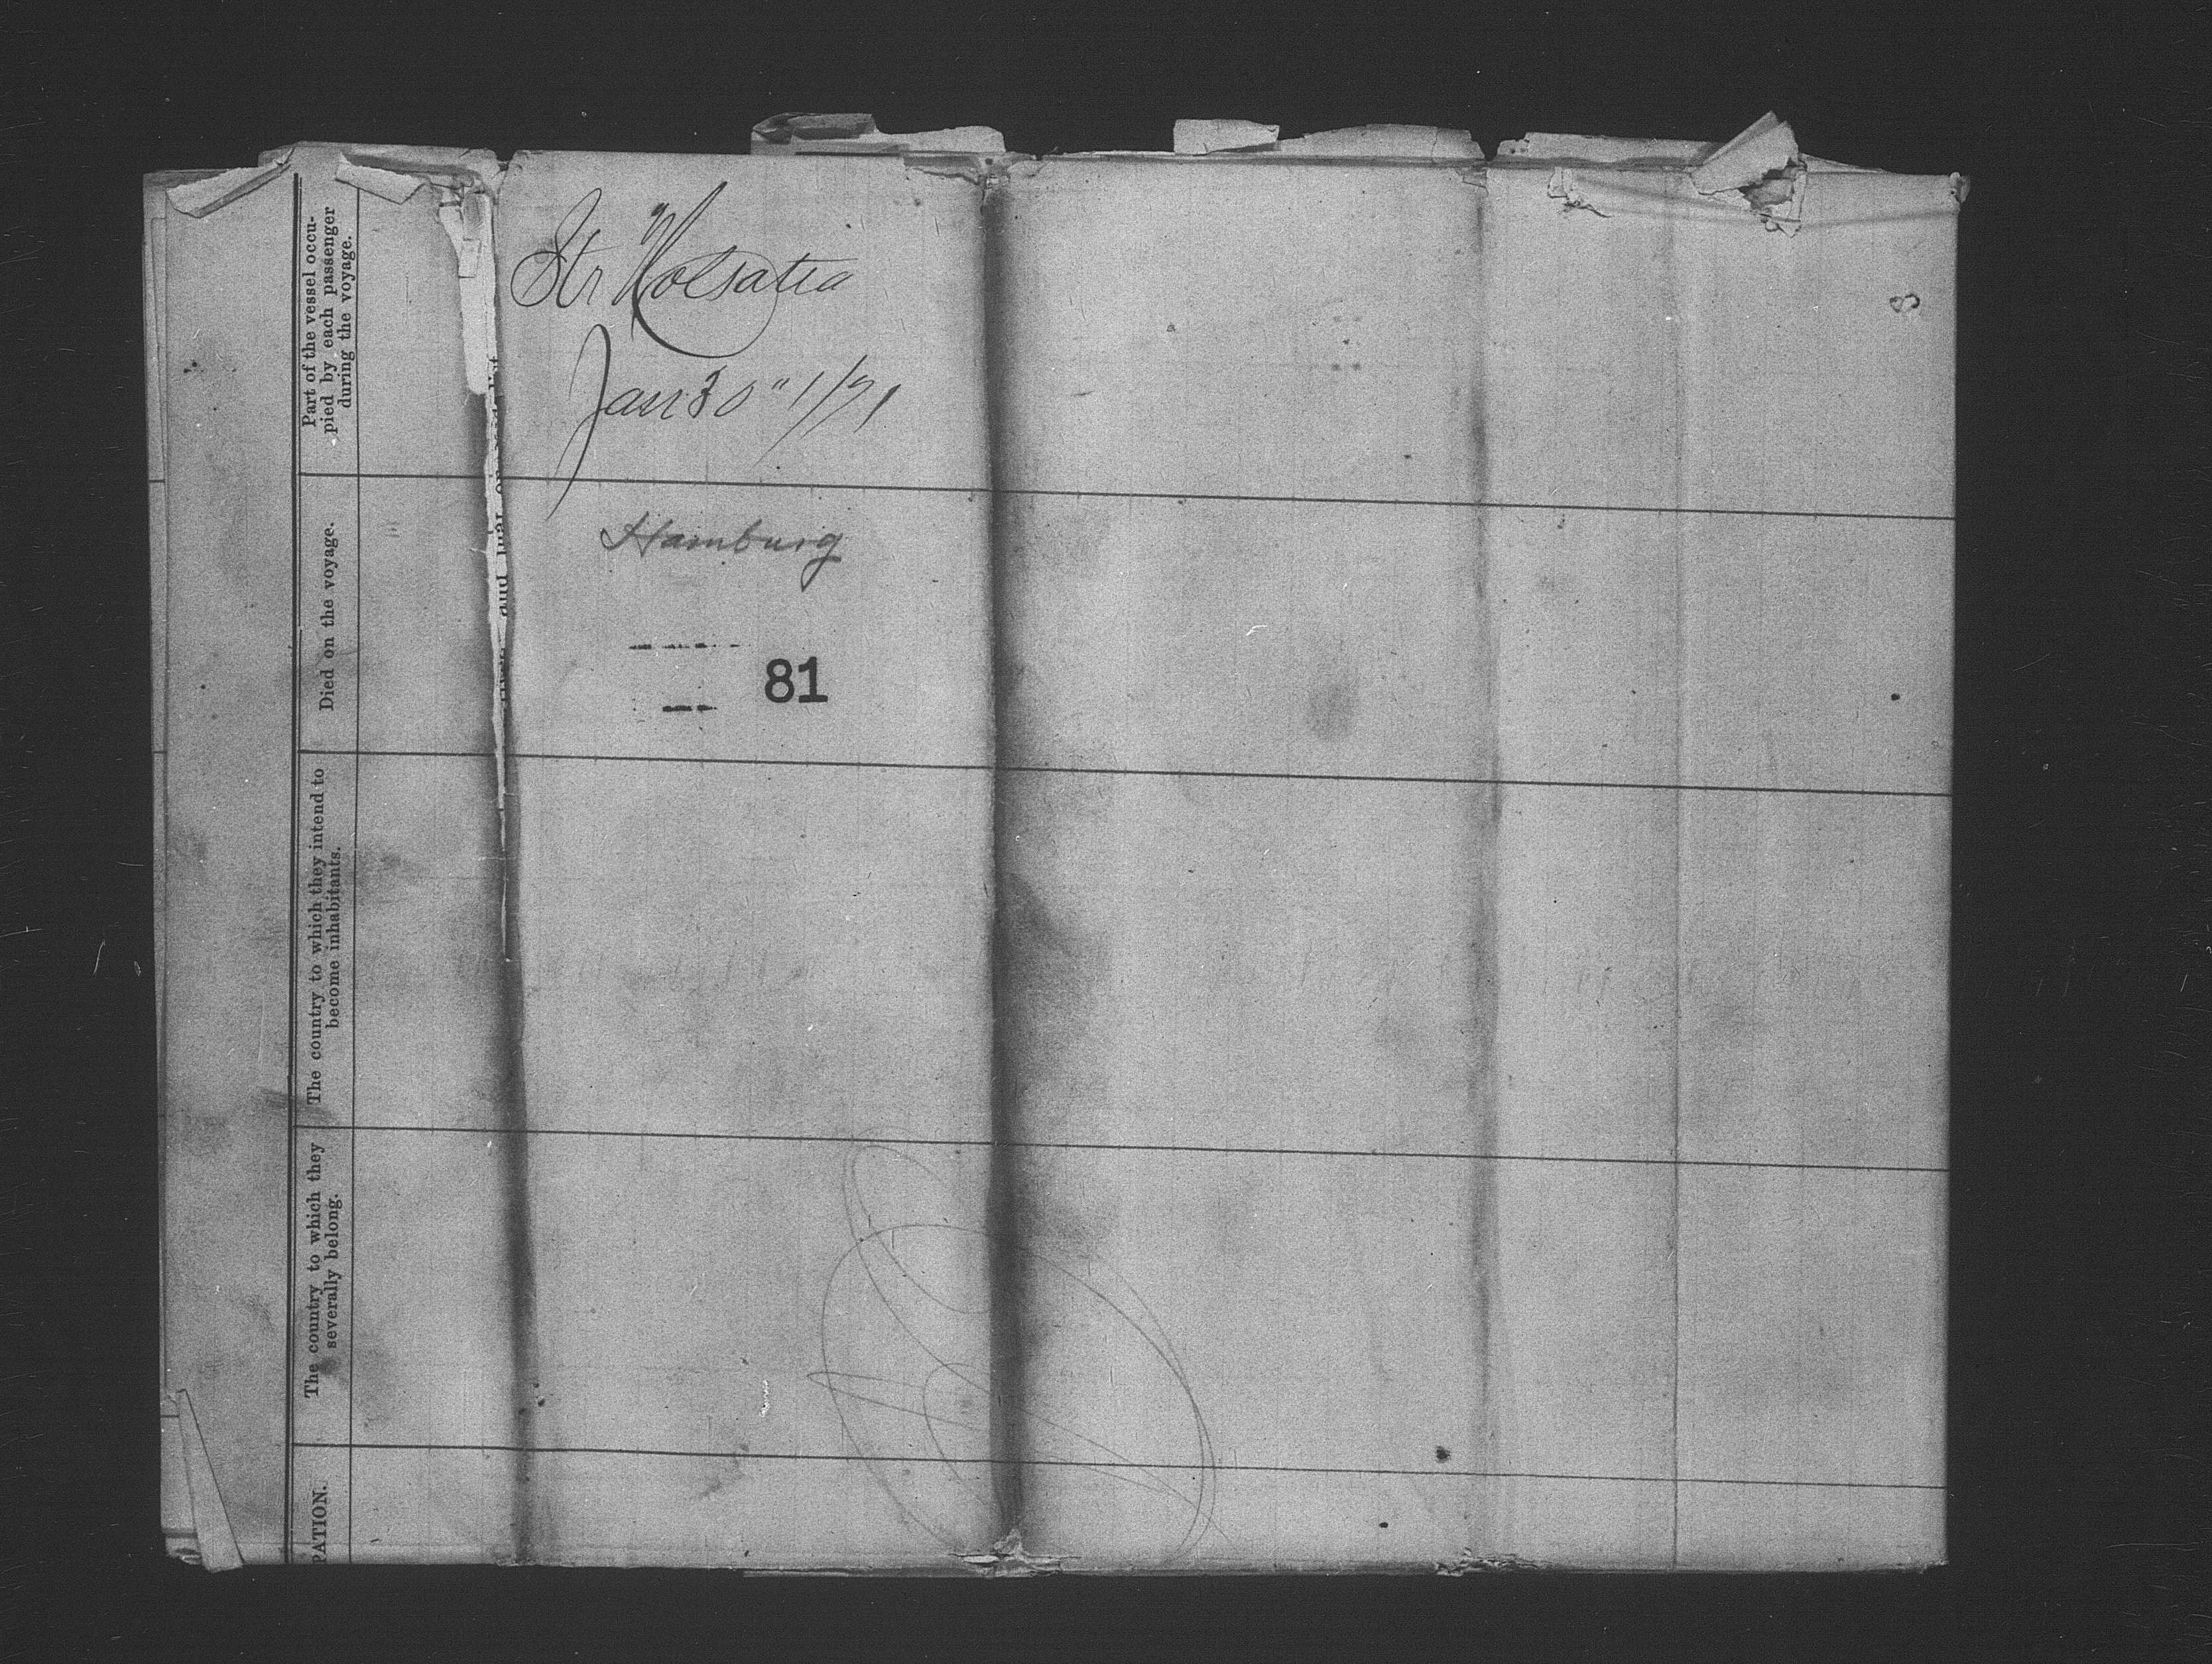 Part of the vessel occu-
pied by each passenger
during the voyage.
Died on the voyage.
The country to which they intend to
become inhabitants.
The country to which they
severally belong.
PATION.
Str "Holsatia
Jan 30" 1/71
Hamburg
81
and that on
8